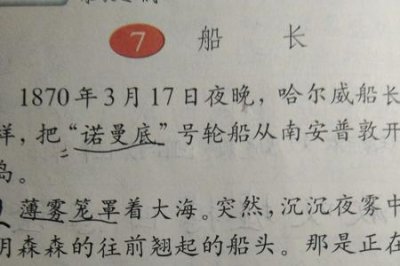 7 船 长
1870年3月17日夜晚，哈尔威船长
样，把“诺曼底”号轮船从南安普敦开
岛。
薄雾笼罩着大海。突然，沉沉夜雾中
阴森森的往前翘起的船头。那是正在